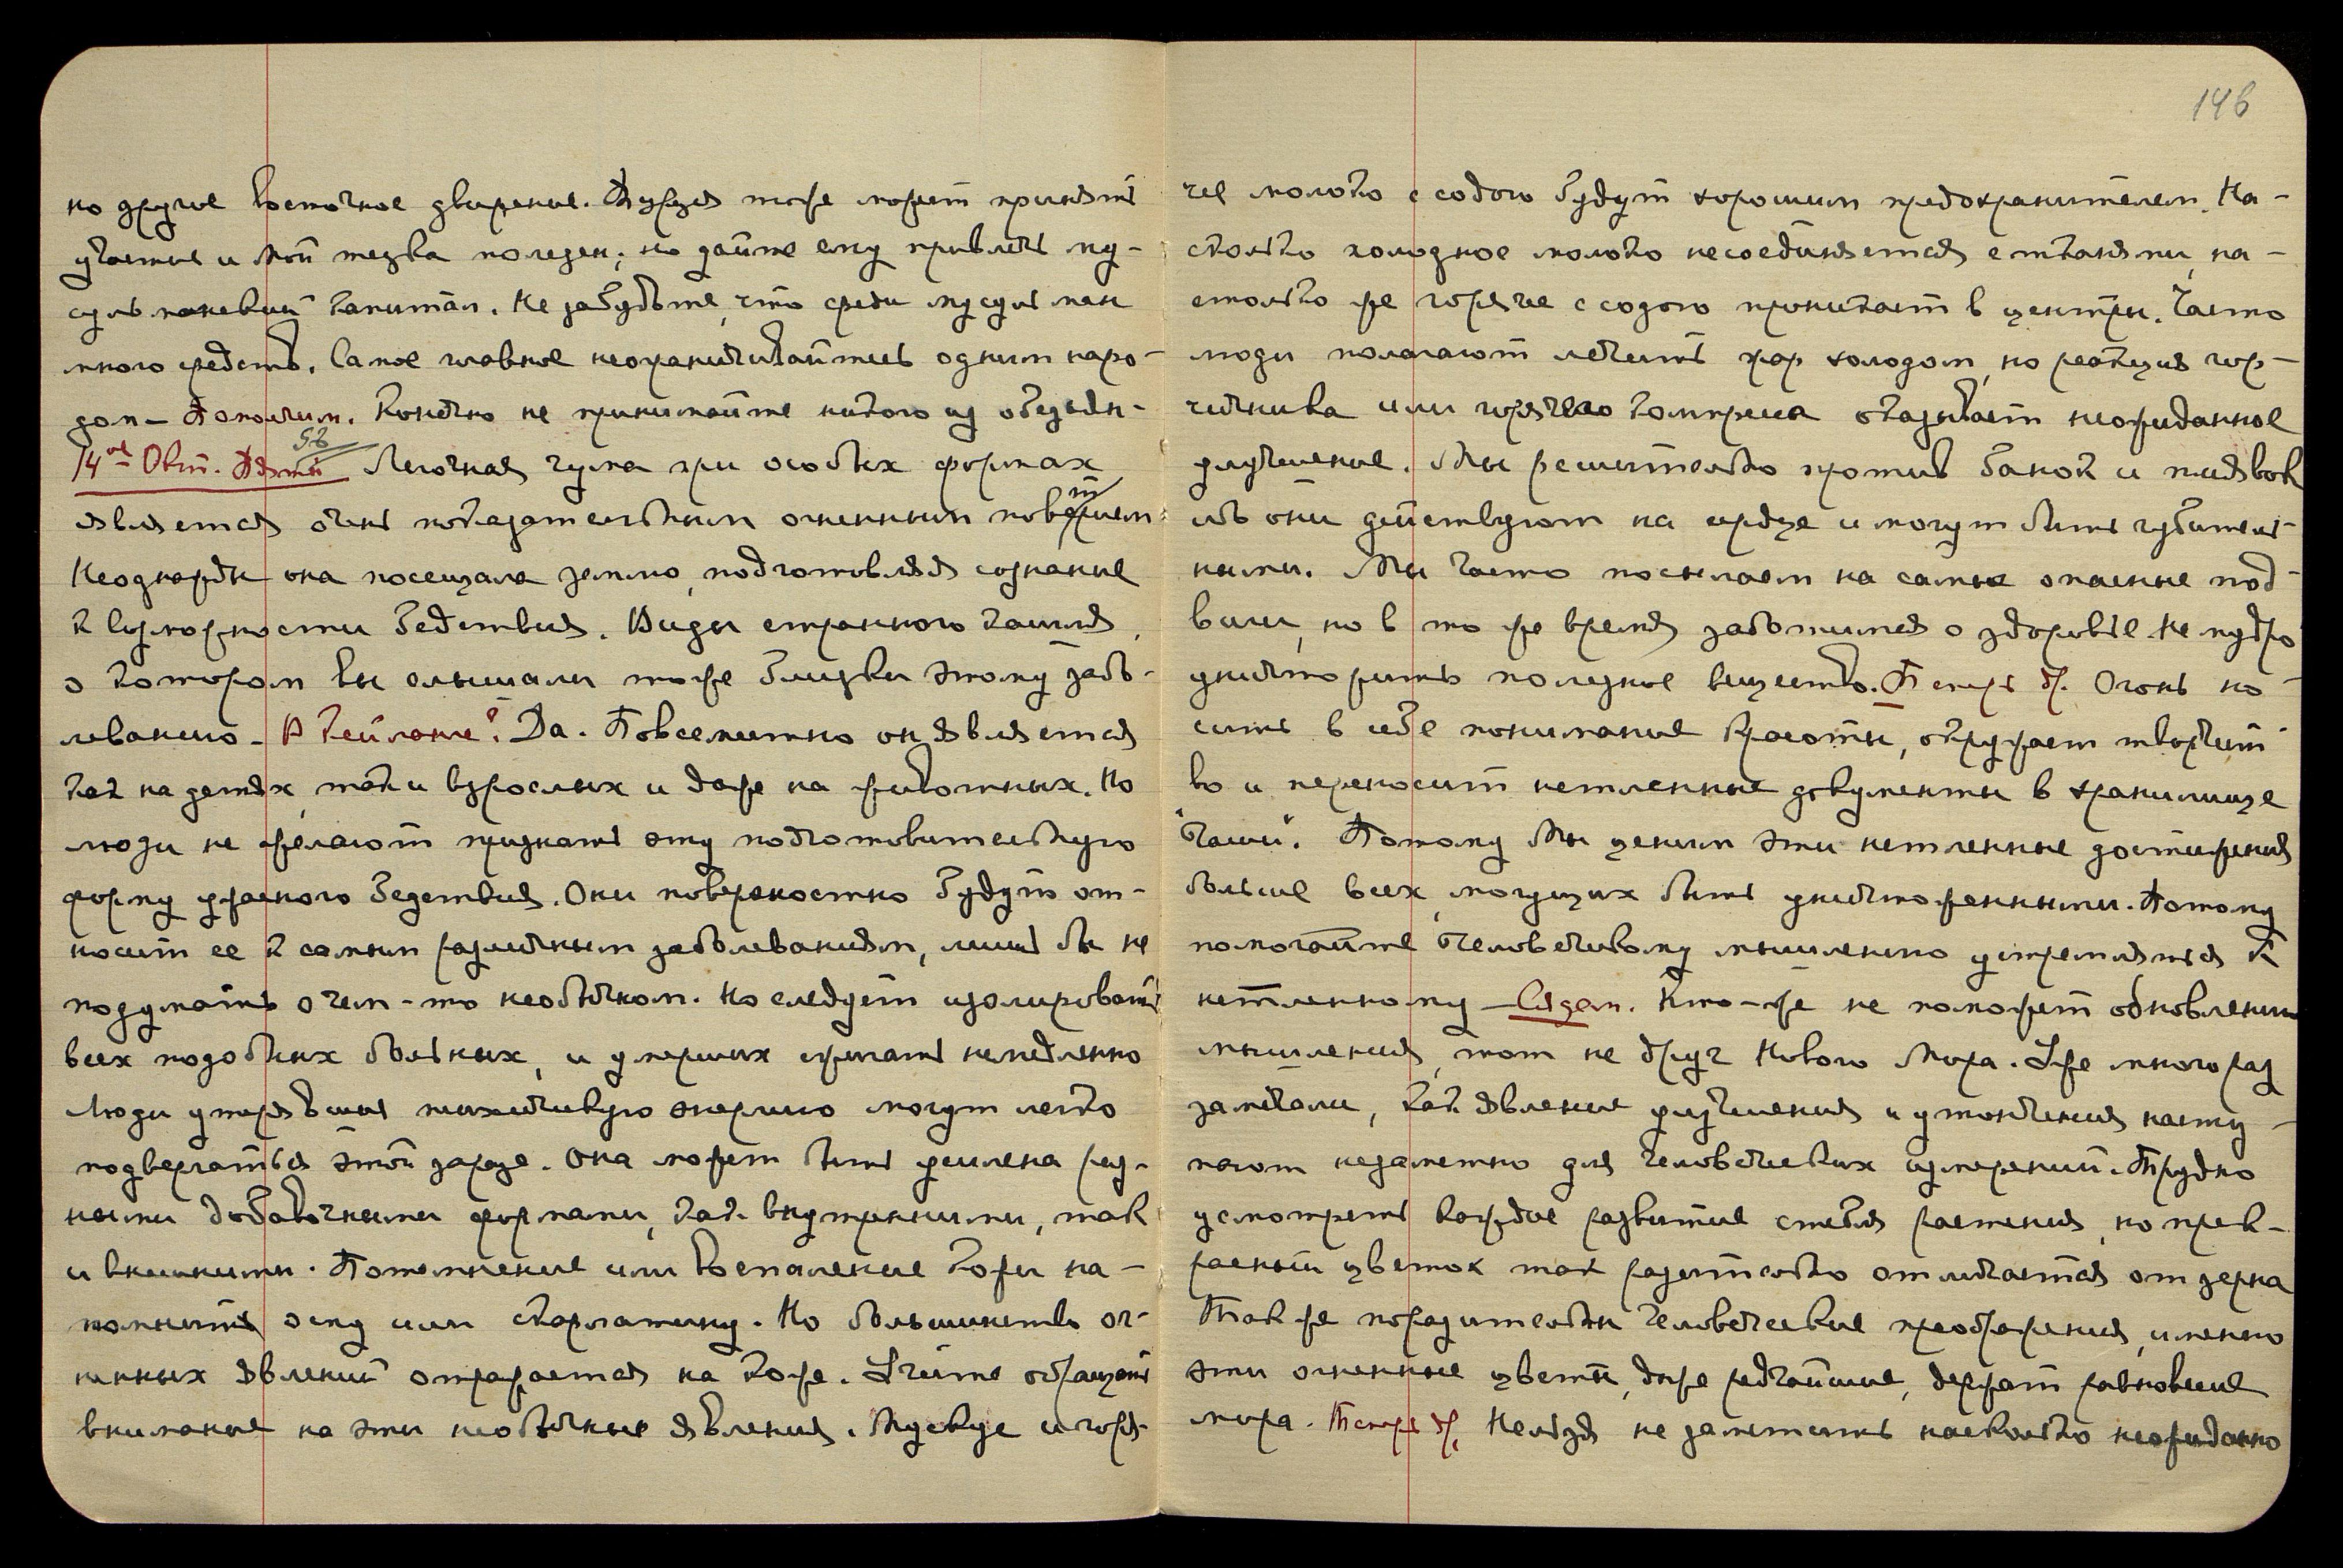 но другое восточное движение. Турция тоже может принять
участие и Мой тезка полезен; но дайте ему привлечь му-
сульманский капитал. Не забудьте, что среди мусульман
много средств. Самое главное неограничивайтесь одним наро-
дом – Помолчим. Конечно не принимайте никого из обезьян-
14ое Окт. Пять 58 Легочная чума при особых формах
является очень показательным огненным поветрием
Неоднажды она посещала землю, подготовляя сознание
к возможности бедствия. Виды странного кашля,
о котором вы слышали тоже близки этому забо-
леванию – В Цейлоне? Да. Повсеместно он является
как на детях, так и взрослых и даже на животных. Но
люди не желают признать эту подготовительную
форму ужасного бедствия. Они поверхностно будут от-
носит ее к самым различным заболеваниям, лишь бы не
подумать о чем-то необычном. Но следует изолировать
всех подобных больных, и умерших сжигать немедленно
Люди утерявшие психическую энергию могут легко
подвергаться этой заразе. Она может быть усилена раз-
ными добавочными формами, как внутренними, так
и внешними. Потемнение или воспаление кожи на-
помнить оспу или скарлатину. Но большинство ог-
ненных явлений отражается на коже. Учите обращать
внимание на эти необычные явления. Мускус и горя-
146
чее молоко с содою будут хорошим предохранителем. На-
сколько холодное молоко несоединяется с тканями, на-
столько же горячее с содою проникает в центры. Часто
люди полагают лечить жар холодом, но реакция гор-
чичника или горячего компресса оказывает неожиданное
улучшение. Мы решительно против банок и пиявок
ибо они действуют на сердце и могут быть губитель-
ными. Мы часто посылаем на самые опасные под-
виги, но в то же время заботимся о здоровье. Не мудро
уничтожить полезное вещество. Теперь др. Огонь но-
сить в себе понимание Красоты, окружает творчест-
во и переносит нетленные документы в хранилище
"Чаши". Потому Мы ценим эти нетленные достижения
больше всех, могущих быть уничтоженными. Потому
помогайте человеческому мышлению устремляться к
нетленному – Сядем. Кто-же не поможет обновлению
мышления, тот не друг Нового Мира. Уже много раз
замечали, как явление улучшения и утончения насту-
пают незаметно для человеческих измерений. Трудно
усмотреть каждое развитие стебля растения, но прек-
расный цветок так разительно отличается от зерна
Так же поразительны человеческие преображения, именно
эти огненные цветы, даже редчайшие, держат равновесие
мира. Теперь др. Нельзя не заметить насколько неожиданно